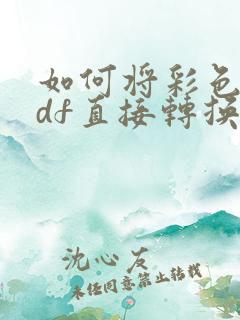 如何将彩色
df直接轉換
沈心友
未经同意禁止转载